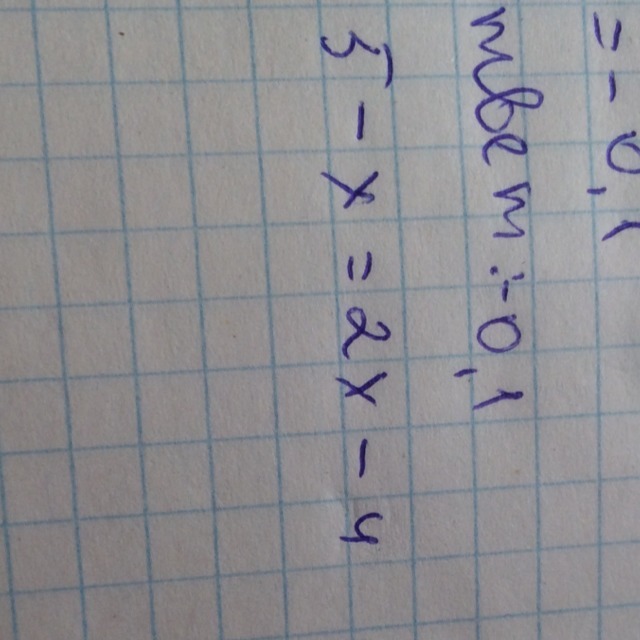 = - 0,1
твет: -0,1
5 - x = 2x - 4